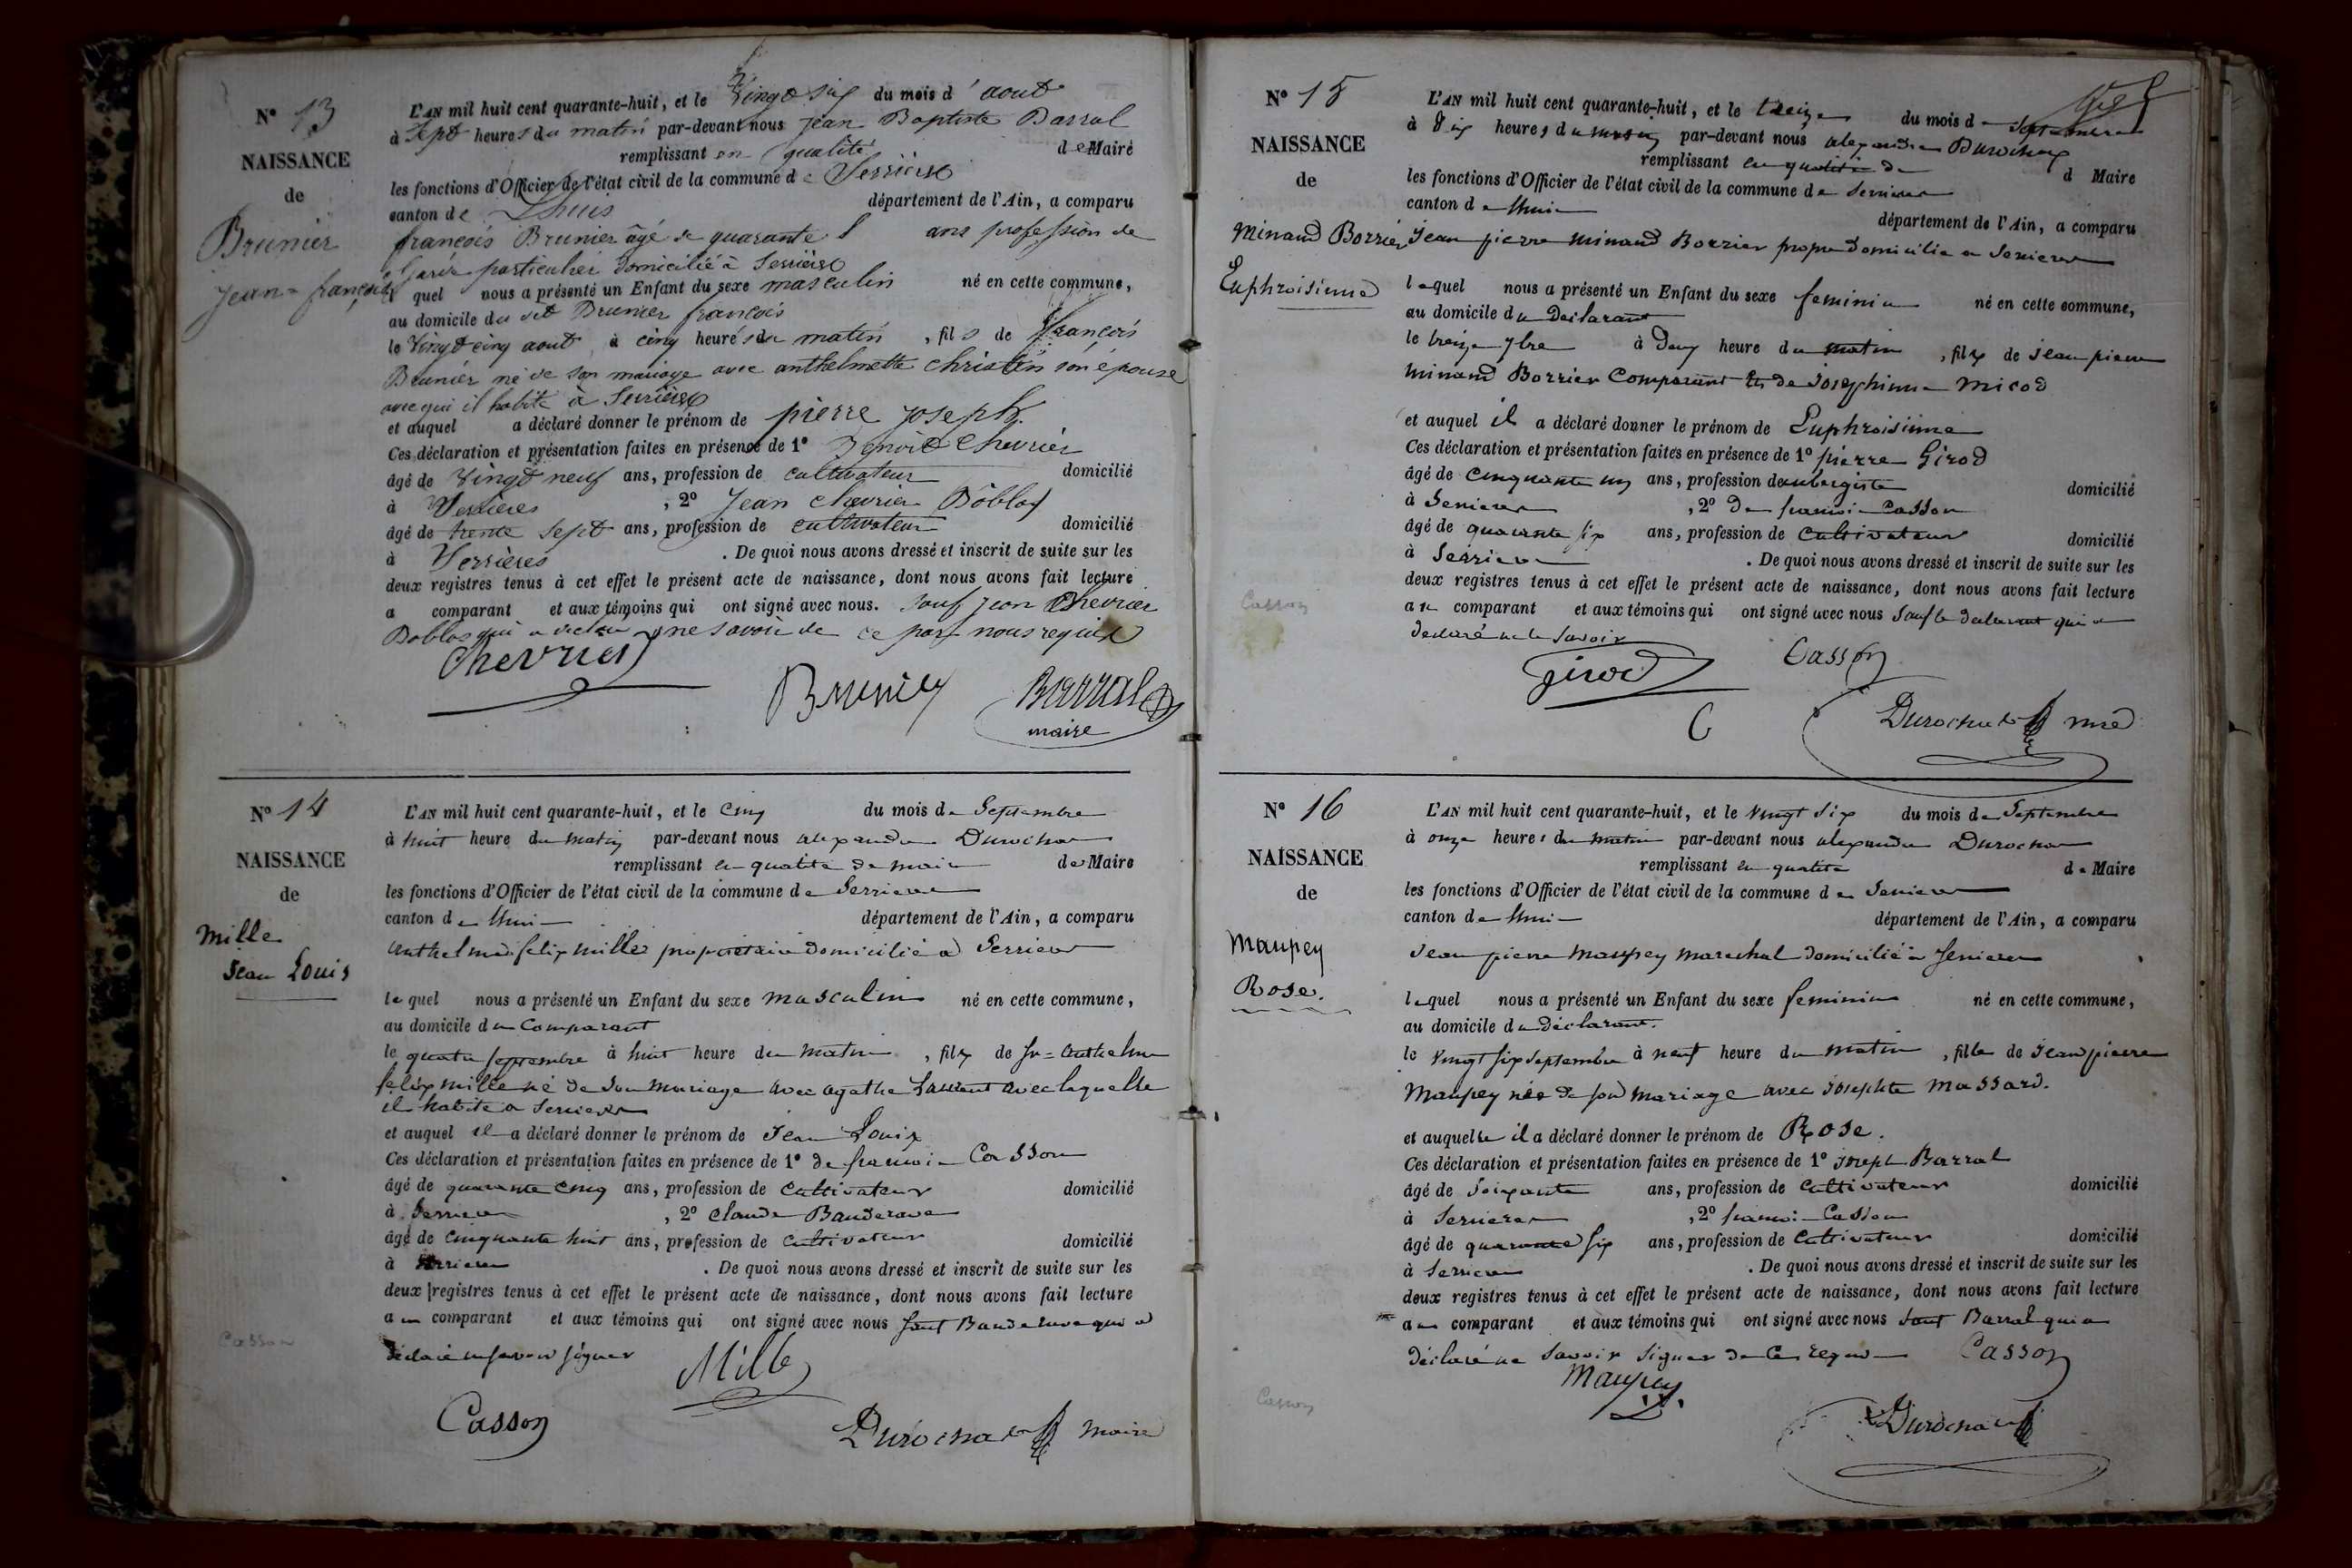 N° 13
NAISSANCE
de
Brunier
Jean = françois
L'AN mil huit cent quarante-huit, et le Vingt six du mois d'aout
à Sept heures du matin par-devant nous Jean Baptiste Barral
remplissant en qualité de Maire
les fonctions d'Officier de l'état civil de la commune de Serrières
canton de Lhuis département de l'Ain, a comparu
françois Brunier âgé de quarante ans profession de
particulier domicilié à Serrières
quel nous a présenté un Enfant du sexe masculin né en cette commune,
au domicile du dit Brunier françois
le Vingt cinq aout à cinq heures du matin, fils de françois
Brunier né de son mariage avec anthelmette christin son épouse
avec qui il habite à Serrières
et auquel a déclaré donner le prénom de pierre joseph
Ces déclaration et présentation faites en présence de 1° Benoit Chevrier
âgé de Vingt neuf ans, profession de cultivateur domicilié
à Serrières, 2° Jean chevrier Doblas
âgé de trente sept ans, profession de cultivateur domicilié
à Serrières. De quoi nous avons dressé et inscrit de suite sur les
deux registres tenus à cet effet le présent acte de naissance, dont nous avons fait lecture
a comparant et aux témoins qui ont signé avec nous. sauf jean Chevrier
Doblas qui a déclaré ne savoir de ce par nous requis
Chevrier
Brunier Barral
maire
N° 14
NAISSANCE
de
Mille
Jean Louis
L'AN mil huit cent quarante-huit, et le Cinq du mois de Septembre
à huit heure du matin par-devant nous alexandre Durochat
remplissant en qualité de maire de Maire
les fonctions d'Officier de l'état civil de la commune de Serrieres
canton de Lhuis département de l'Ain, a comparu
anthelme felix mille propriétaire domicilié a Serrieres
le quel nous a présenté un Enfant du sexe masculin né en cette commune,
au domicile du Comparant
le quatre septembre à huit heure du matin, fils de Jn = anthelme
felix mille né de son mariage avec agathe Laurent avec laquelle
il habite a Serrieres
et auquel il a déclaré donner le prénom de Jean Louis
Ces déclaration et présentation faites en présence de 1° de francois Casson
âgé de quarante cinq ans, profession de Cultivateur domicilié
à Serrieres, 2° Claude Banderave
âgé de Cinquante huit ans, profession de Cultivateur domicilié
à Serrieres. De quoi nous avons dressé et inscrit de suite sur les
deux registres tenus à cet effet le présent acte de naissance, dont nous avons fait lecture
au comparant et aux témoins qui ont signé avec nous sauf Banderave qui a
déclaré ne savoir signer Mille
Casson
Casson Durochat maire
N° 15
NAISSANCE
de
Minand Borrier
Euphroisinne
L'AN mil huit cent quarante-huit, et le treize du mois de Septembre
à dix heures du matin par-devant nous alexandre Durochat
remplissant en qualité de d Maire
les fonctions d'Officier de l'état civil de la commune de Serrieres
canton de Lhuis département de l'Ain, a comparu
Jean pierre minand Borrier propre domicilie a Serrieres
lequel nous a présenté un Enfant du sexe feminin né en cette commune,
au domicile du Déclarant
le treize 7bre à Deux heure du matin, fille de Jean pierre
minand Borrier Comparant et de Josephinne micod
et auquel il a déclaré donner le prénom de Euphroisinne
Ces déclaration et présentation faites en présence de 1° pierre Girod
âgé de Cinquante un ans, profession de aubergiste domicilié
à Serrieres, 2° De francois Casson
âgé de quarante six ans, profession de Cultivateur domicilié
à Serrieres. De quoi nous avons dressé et inscrit de suite sur les
deux registres tenus à cet effet le présent acte de naissance, dont nous avons fait lecture
au comparant et aux témoins qui ont signé avec nous sauf le declarant qui a
Casson
déclaré ne le savoir
girod Casson
C Durochat mre
N° 16
NAISSANCE
de
Maupey
Rose.
L'AN mil huit cent quarante-huit, et le Vingt six du mois de Septembre
à onze heures du matin par-devant nous alexandre Durochat
remplissant en qualité de Maire
les fonctions d'Officier de l'état civil de la commune de Serrieres
canton de Lhuis département de l'Ain, a comparu
Jean pierre Maupey marechal domicilié a Serrieres
lequel nous a présenté un Enfant du sexe feminin né en cette commune,
au domicile du déclarant.
le Vingt six septembre à neuf heure du matin, fille de Jean pierre
Maupey née de son mariage avec Josephte Massard.
et auquelle il a déclaré donner le prénom de Rose.
Ces déclaration et présentation faites en présence de 1° Joseph Barral
âgé de Soixante ans, profession de Cultivateur domicilié
à Serrieres, 2° francois Casson
âgé de quarante six ans, profession de Cultivateur domicilié
à Serrieres. De quoi nous avons dressé et inscrit de suite sur les
deux registres tenus à cet effet le présent acte de naissance, dont nous avons fait lecture
au comparant et aux témoins qui ont signé avec nous sauf Barral qui a
déclaré ne savoir signer de Ce requis Casson
Maupey
Casson
Durochat